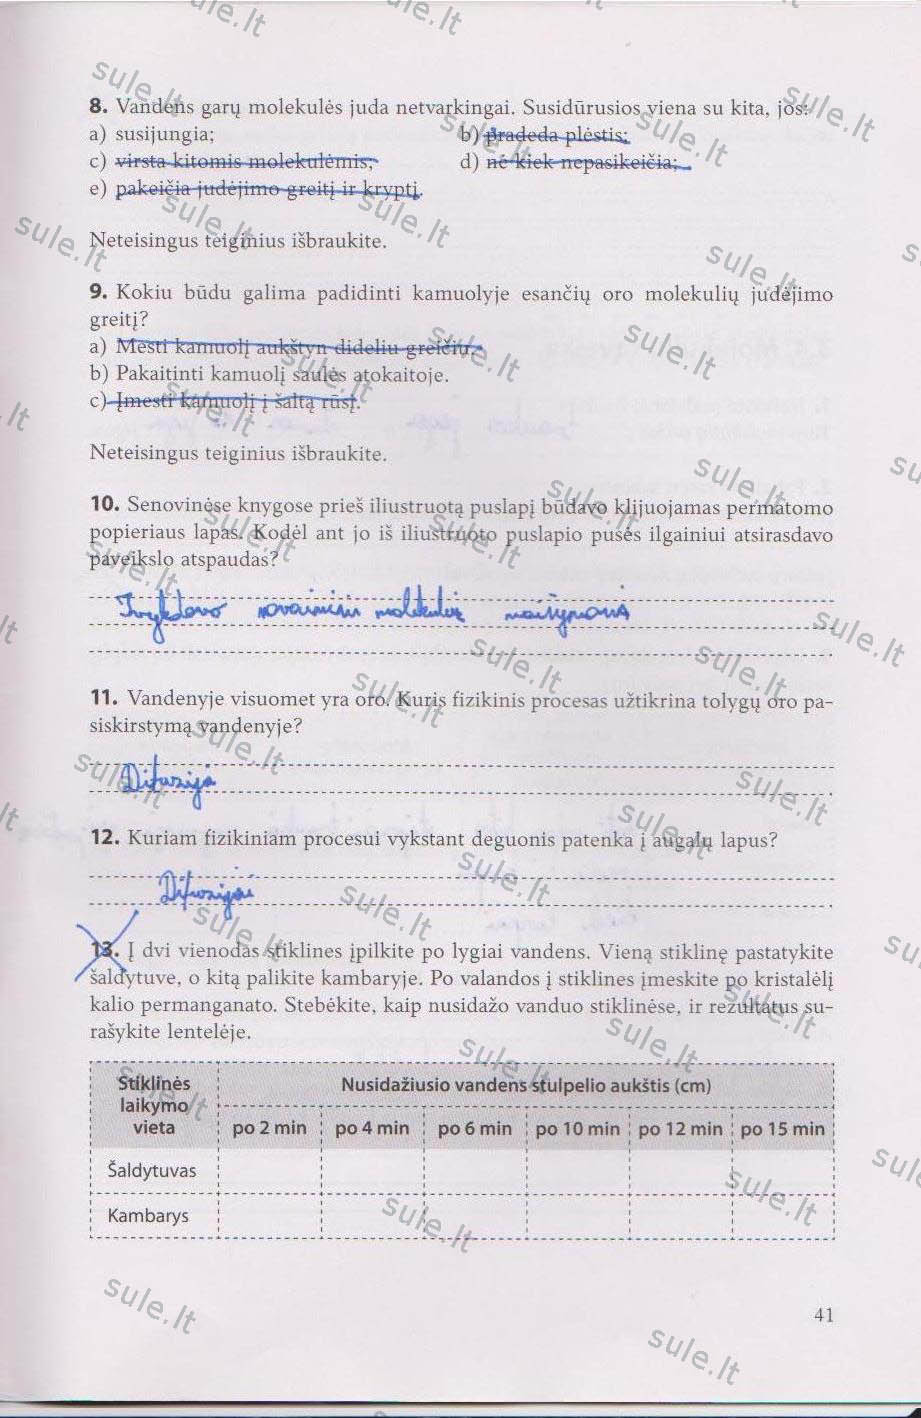 8. Vandens garų molekulės juda netvarkingai. Susidūrusios viena su kita, jos:
a) susijungia; b) pradeda plėstis;
c) virsta kitomis molekulėmis; d) nė kiek nepasikeičia;
e) pakeičia judėjimo greitį ir kryptį.
Neteisingus teiginius išbraukite.
9. Kokiu būdu galima padidinti kamuolyje esančių oro molekulių judėjimo
greitį?
a) Mesti kamuolį aukštyn dideliu greičiu.
b) Pakaitinti kamuolį saulės atokaitoje.
c) Įmesti kamuolį į šaltą rūsį.
Neteisingus teiginius išbraukite.
10. Senovinėse knygose prieš iliustruotą puslapį būdavo klijuojamas permatomo
popieriaus lapas. Kodėl ant jo iš iliustruoto puslapio pusės ilgainiui atsirasdavo
paveikslo atspaudas?
Įvykdavo savaiminis molekulių maišymasis
11. Vandenyje visuomet yra oro. Kuris fizikinis procesas užtikrina tolygų oro pa-
siskirstymą vandenyje?
Difuzija
12. Kuriam fizikiniam procesui vykstant deguonis patenka į augalų lapus?
Difuzijai
13. Į dvi vienodas stiklines įpilkite po lygiai vandens. Vieną stiklinę pastatykite
šaldytuve, o kitą palikite kambaryje. Po valandos į stiklines įmeskite po kristalėlį
kalio permanganato. Stebėkite, kaip nusidažo vanduo stiklinėse, ir rezultatus su-
rašykite lentelėje.
Stiklinės laikymo vieta Nusidažiusio vandens stulpelio aukštis (cm)
po 2 min po 4 min po 6 min po 10 min po 12 min po 15 min
Šaldytuvas
Kambarys
41
sule.lt